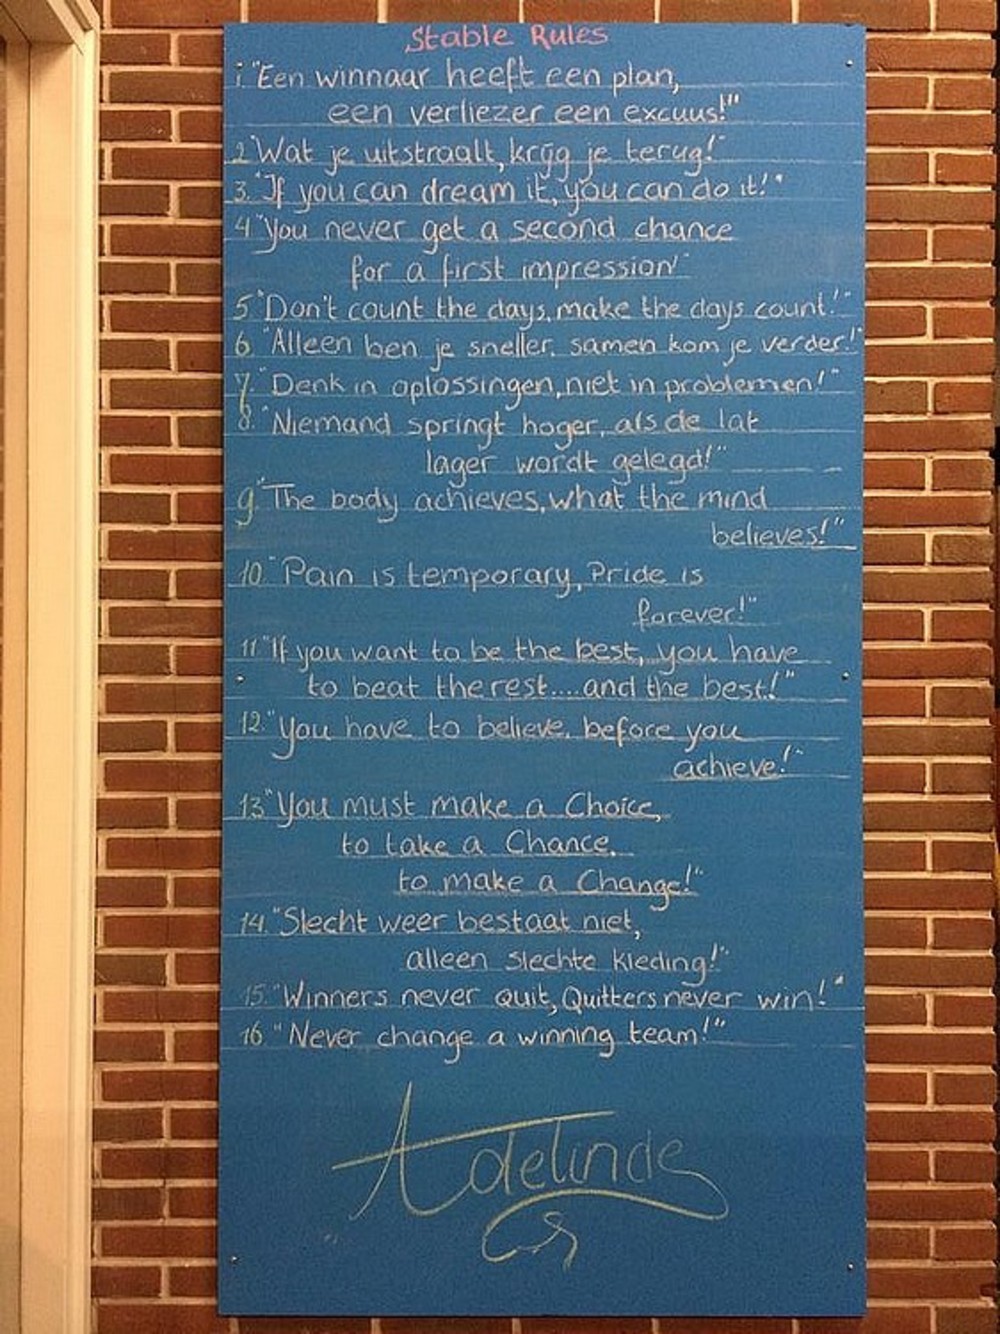 Stable Rules
1. "Een winnaar heeft een plan,
een verliezer een excuus!"
2 "Wat je uitstraalt, krijg je terug!"
3. "If you can dream it, you can do it!"
4 "You never get a second chance
for a first impression"
5 "Don't count the days, make the days count!"
6. "Alleen ben je sneller, samen kom je verder!"
7. "Denk in oplossingen, niet in problemen!"
8. "Niemand springt hoger, als de lat
lager wordt gelegd!"
9 "The body achieves, what the mind
believes!"
10 "Pain is temporary, Pride is
forever!"
11 "If you want to be the best, you have
to beat the rest....and the best!"
12. "You have to believe, before you
achieve!"
13 "You must make a Choice,
to take a Chance,
to make a Change!"
14. "Slecht weer bestaat niet,
alleen slechte kleding!"
15. "Winners never quit, Quitters never win!"
16. "Never change a winning team!"
Adelinde